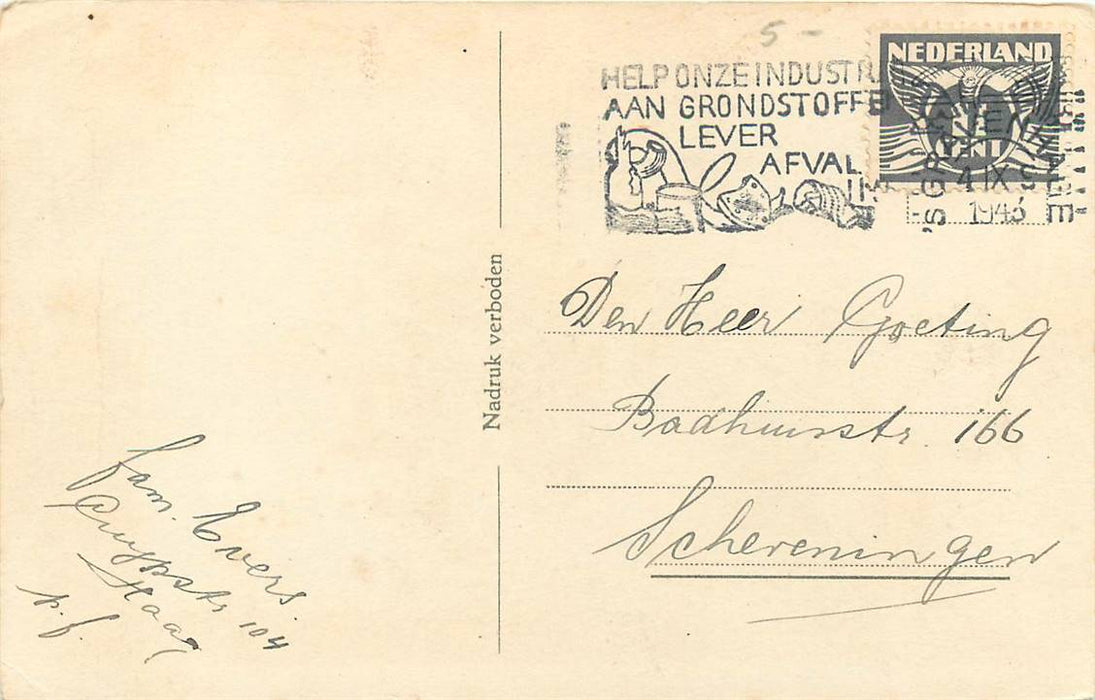 5-
HELP ONZE INDUSTRI
AAN GRONDSTOFFE
LEVER
AFVAL
NEDERLAND
CENT
'SGRAVENHAGE
4 IX
1943
Nadruk verboden
Den Heer Goeting
Badhuisstr. 166
Scheveningen
fam. Evers.
Cuypstr. 104
Haag
p.f.